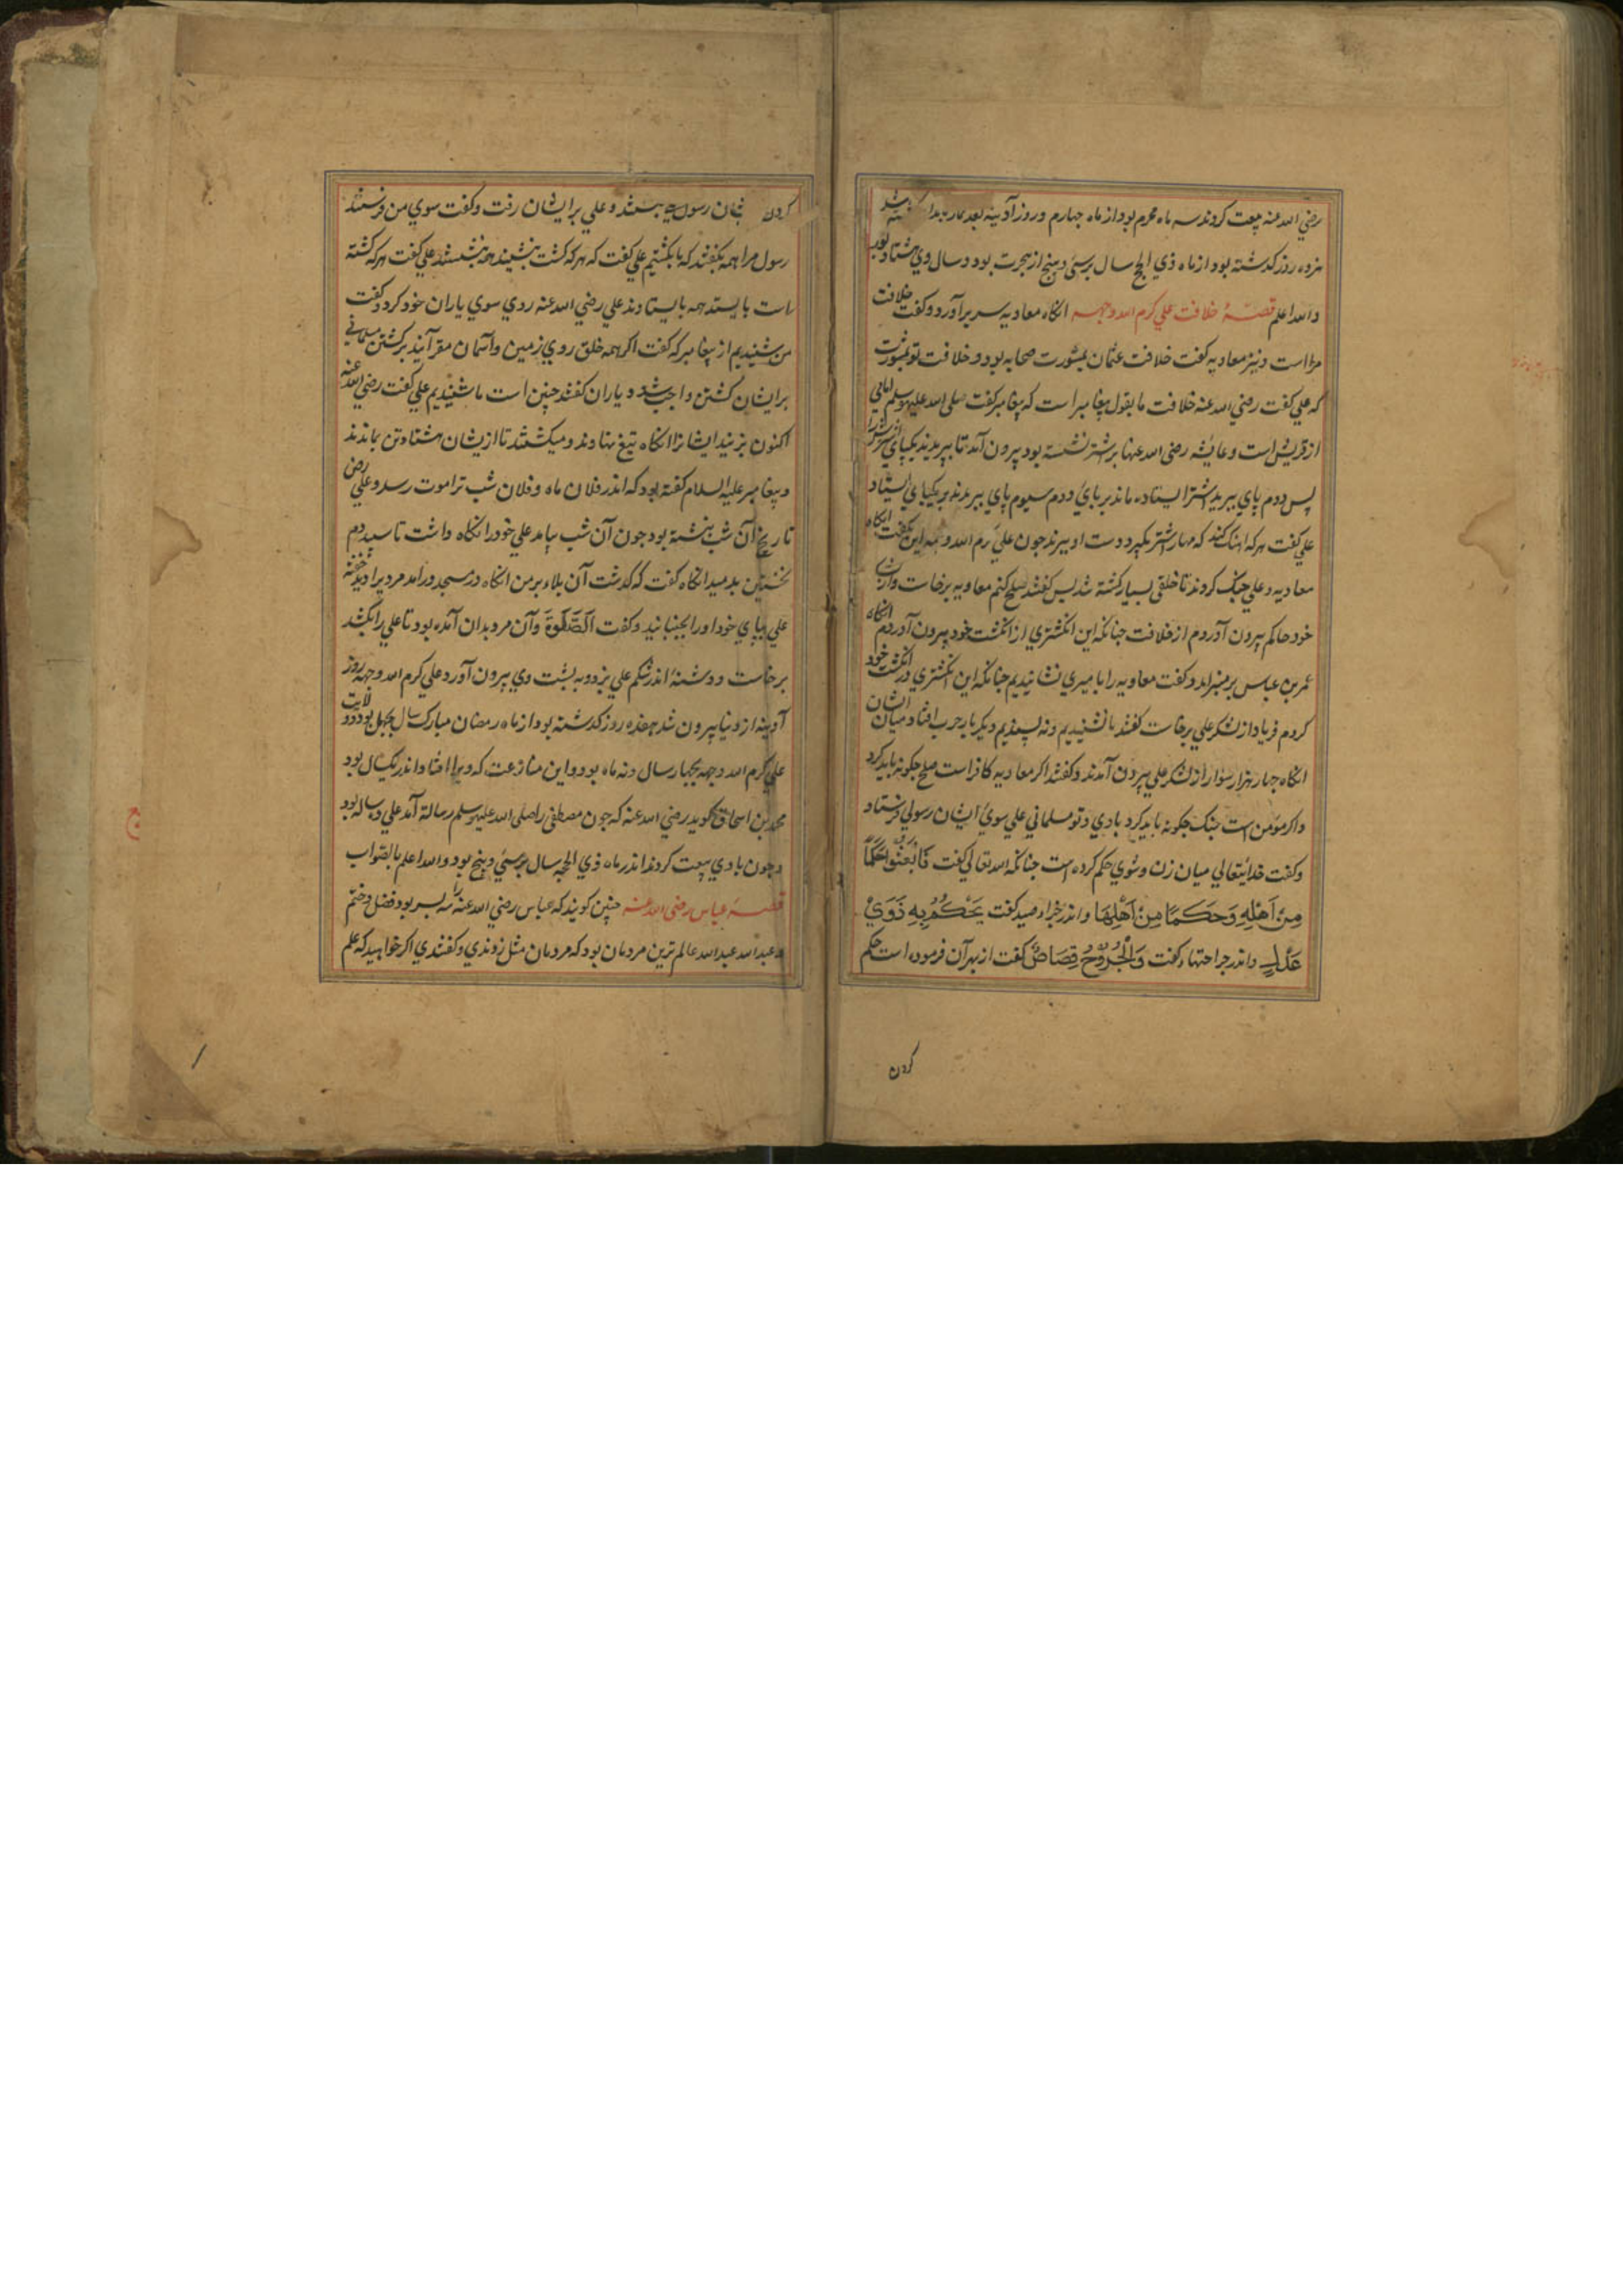 رضي الله عنه بیعت کردند سه ماه محرم بود از ماه چهارم و روز آدینه بعد نماز
هژده روز کذشته بود از ماه ذي الحج سال برسي و پنج از هجرت بود و سال وي هشتاد بود
والله اعلم قصهٔ خلافت علي کرم الله وجهه انکاه معاویه سر برآورد و کفت خلافت
مرا است و نیز معاویه کفت خلافت عثمان بمشورت صحابه بود و خلافت تو بمشورت
که علي کفت رضي الله عنه خلافت ما بقول پیغامبر است که پیغامبر کفت صلی الله علیه وسلم
از قریش است و عایشه رضی الله عنها بر اشتر نشسته بود بیرون آمد تا ببریدند یکپاي
پس دوم پاي ببرید اشتر ایستاده ماند بر پاي دوم سیوم پاي ببریدند بر یکپاي ایستاد
علي کفت هر که اهنک کند که مهار اشتر بکیرد دست او ببرند چون علي کرم الله وجهه این بکفت انکاه
معاویه و علي جنک کردند تا خلقی بسیار کشته شد پس کفتند صلح کنیم معاویه برخاست و از
خود حاکم بیرون آوردم از خلافت چنانکه این انکشتري از انکشت خود بیرون آوردم انکاه
عمر بن عباس بر منبر امد و کفت معاویه را بامیري نشانیدیم چنانکه این انکشتري در انکشت خود
کردم فریاد از لشکر علي برخاست کفتند ما نشنیدیم و نه پسندیم دیکر بار حرب افتاد میان ایشان
انکاه چهار هزار سوار از لشکر علي بیرون آمدند و کفتند اکر معاویه کافر است صلح چکونه باید کرد
واکر مؤمن است جنک چکونه باید کرد با وي و تو مسلماني علي سوي ایشان رسولي فرستاد
وکفت خدایتعالي میان زن و شوي حکم کرده است چنانکه الله تعالي کفت فَابْعَثُوا حَكَمًا
مِنْ أَهْلِهِ وَحَكَمًا مِنْ أَهْلِهَا واندر جزاء صید کفت يَحْكُمُ بِهِ ذَوَيْ
عَدْلٍ واندر جراحتها کفت وَالْجُرُوحَ قِصَاصٌ کفت از بهر آن فرموده است حکم
کردن
کردن رسول و علي بر ایشان رفت و کفت سوي من فرستند
رسول مرا همه بکفتند که ما بکشتیم علي کفت که هر که کشت بنشیند همه بنشستند علي کفت هر که کشته
است بایستد همه بایستادند علي رضي الله عنه روي سوي یاران خود کرد و کفت
من شنیدیم از پیغامبر که کفت اکر همه خلق روي زمین و آسمان مقر آیند بر کشتن مسلماني
بر ایشان کشتن واجب شد و یاران کفتند چنین است ما شنیدیم علي کفت رضي الله عنه
اکنون بزنید ایشانرا انکاه تیغ نهادند و میکشتند تا از یشان هشتاد تن بماندند
و پیغامبر علیه السلام کفته بود که اندر فلان ماه و فلان شب ترا موت رسد و علي رض
تاریخ آن شب بنبشته بود چون آن شب بیامد علي خود را نکاه داشت تا سپیده دم
نخستین بدمید انکاه کفت که کذشت آن بلاء بر من انکاه در مسجد درآمد مردیرا دید خفته
علي بپاي خود او را بجنبانید و کفت اَلصَّلٰوةَ وآن مرد بدان آمده بود تا علي را بکشد
برخاست و دشنهٔ اندر شکم علي بزد و به پشت وي بیرون آورد علي کرم الله وجهه روز
آدینه از دنیا بیرون شد هفده روز کذشته بود از ماه رمضان مبارک سال بچهل بود و ولایت
علي کرم الله وجهه بچهار سال و نه ماه بود و این منازعت که ویرا افتاد اندر یکسال بود
محمد بن اسحاق کوید رضي الله عنه که چون مصطفی را صلی الله علیه وسلم رسالة آمد علي ده ساله بود
وچون با وي بیعت کردند اندر ماه ذي الحجه سال برسي و پنج بود والله اعلم بالصواب
قصهٔ عباس رضی الله عنه چنین کویند که عباس رضي الله عنه را سه پسر بود فضل و ختم
و عبد الله عبد الله عالم ترین مردمان بود که مردمان مثل زوندي و کفتندي اکر خواهید که علم